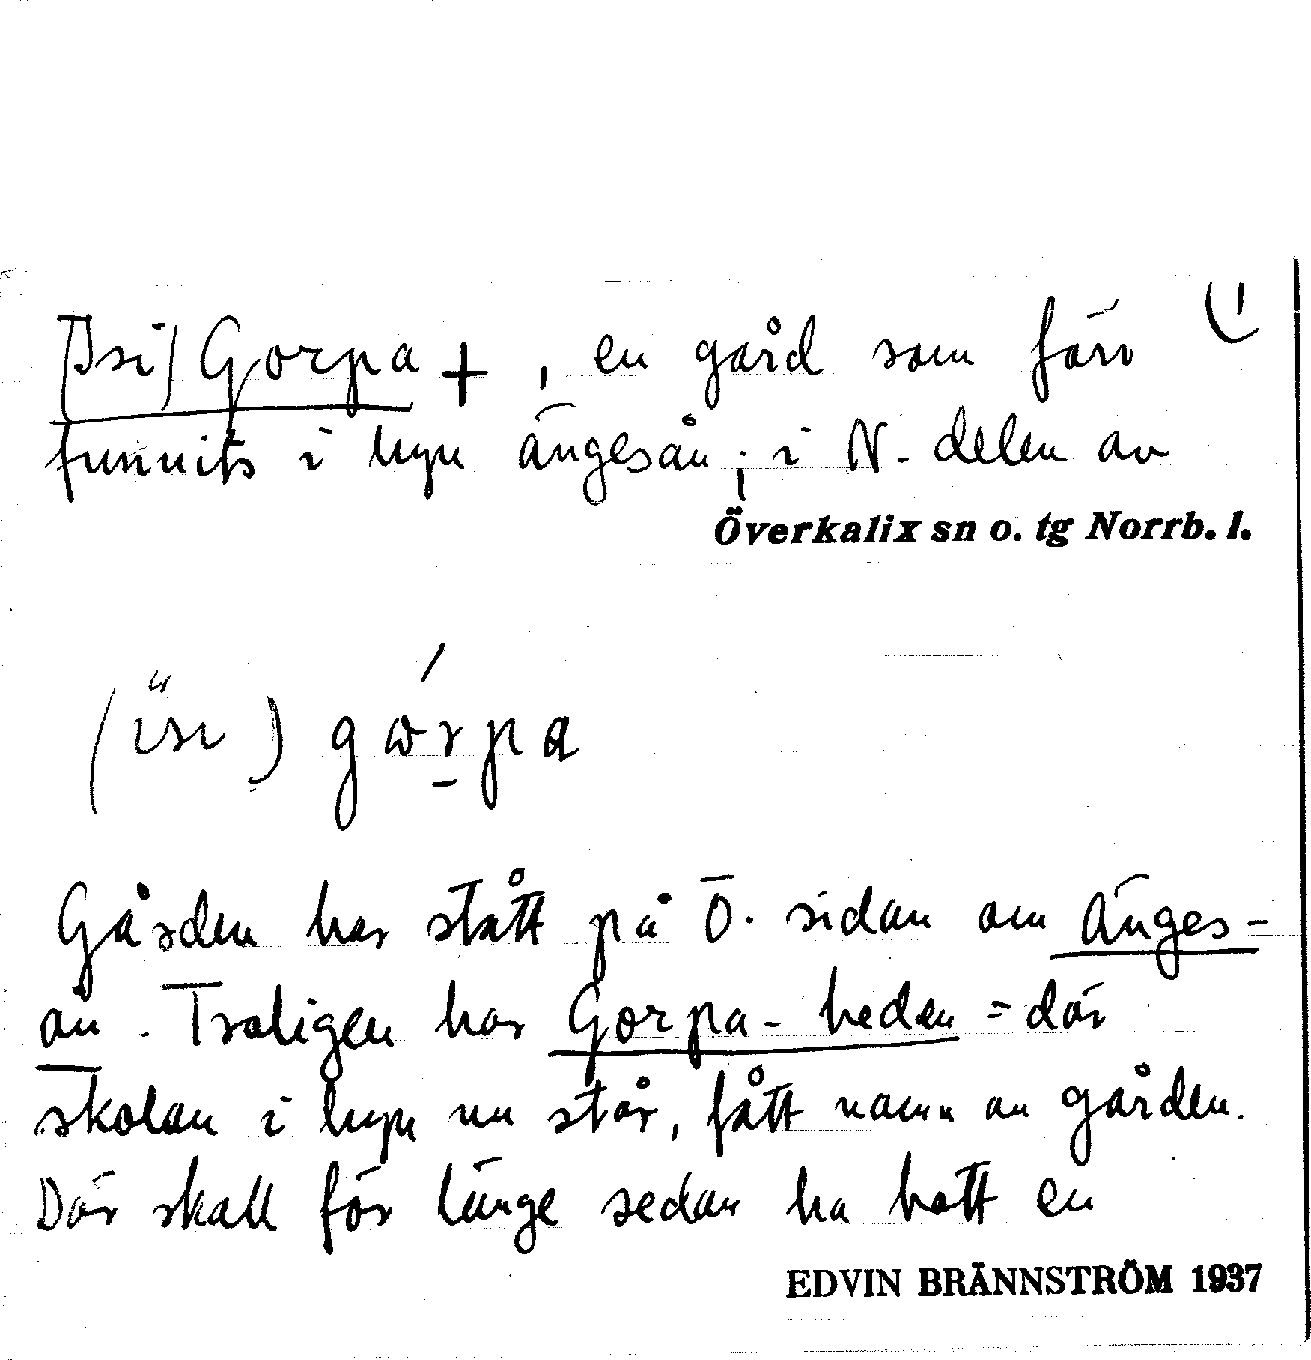 [Isi] Gorpa +, en gård som förr
1)
funnits i byn Ängesån; i N. delen av
Överkalix sn o. tg Norrb. l.
(isi) górpa
Gården har stått på Ö. sidan om Änges-
ån. Troligen har Gorpa-heden = där
skolan i byn nu står, fått namn av gården.
Där skall för länge sedan ha bott en
EDVIN BRÄNNSTRÖM 1937